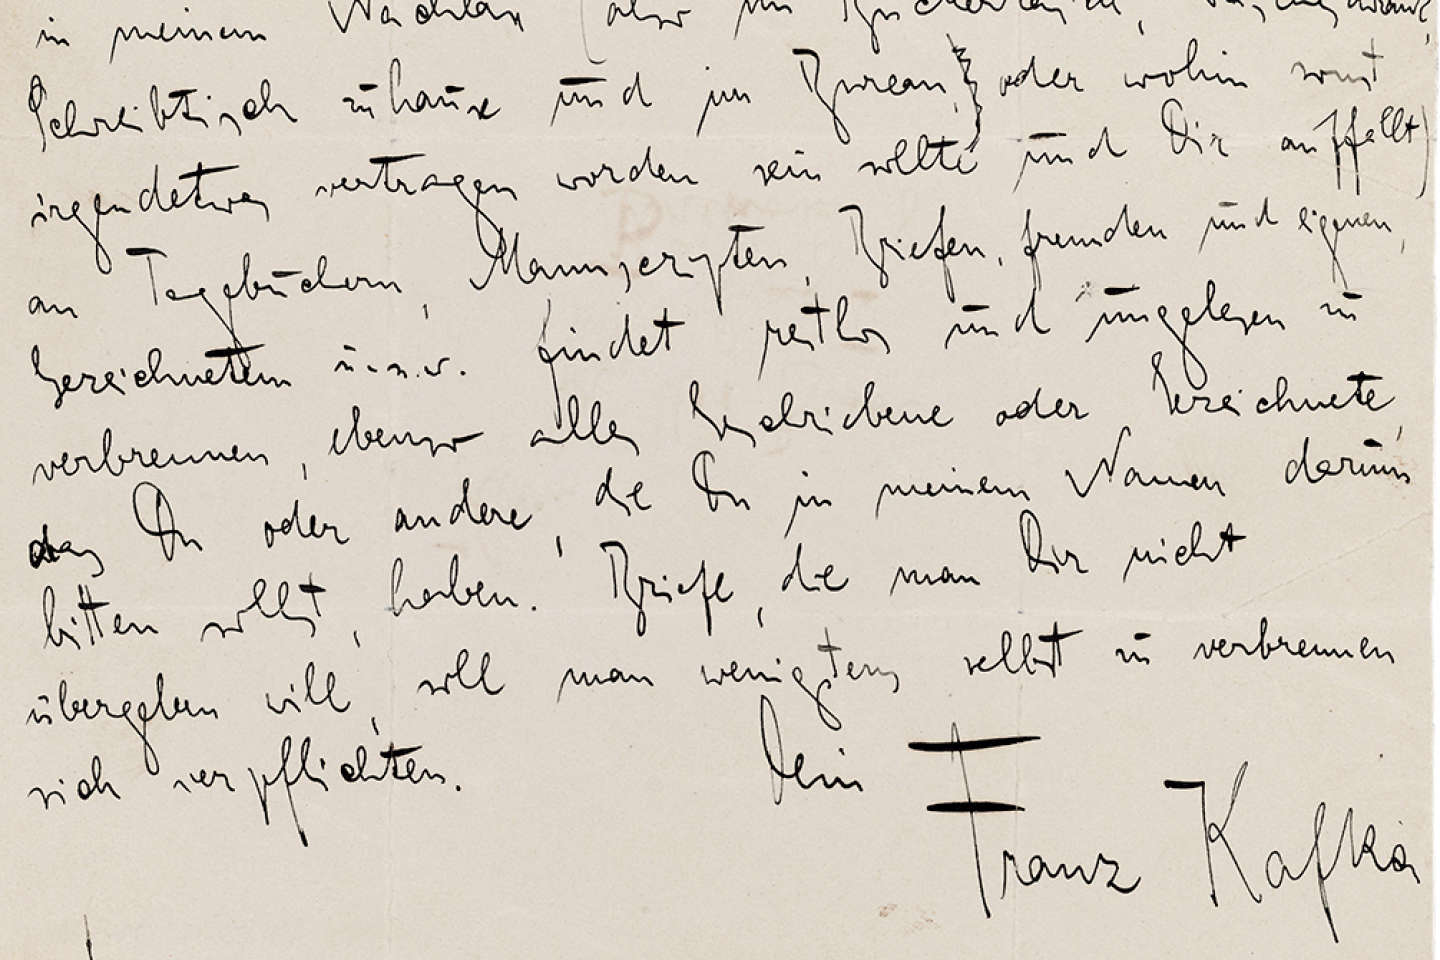 in meinem Nachlass (also im Bücherkasten, Wäscheschrank,
Schreibtisch zuhause und im Bureau, oder wohin sonst
irgendetwas vertragen worden sein sollte und Dir auffällt)
an Tagebüchern, Manuscripten, Briefen, fremden und eignen,
Gezeichnetem u.s.w. findet restlos und ungelesen zu
verbrennen, ebenso alles Geschriebene oder Gezeichnete,
das Du oder andere, die Du in meinem Namen darum
bitten sollst, haben. Briefe, die man Dir nicht
übergeben will, soll man wenigstens selbst zu verbrennen
sich verpflichten.
Dein Franz Kafka